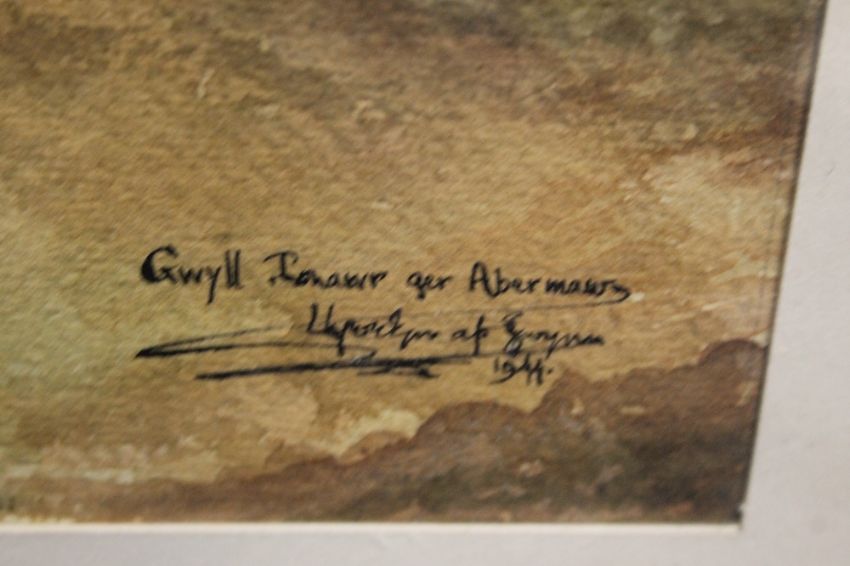 Gwyll Ionawr ger Abermaw
ap Gwynn
1944.